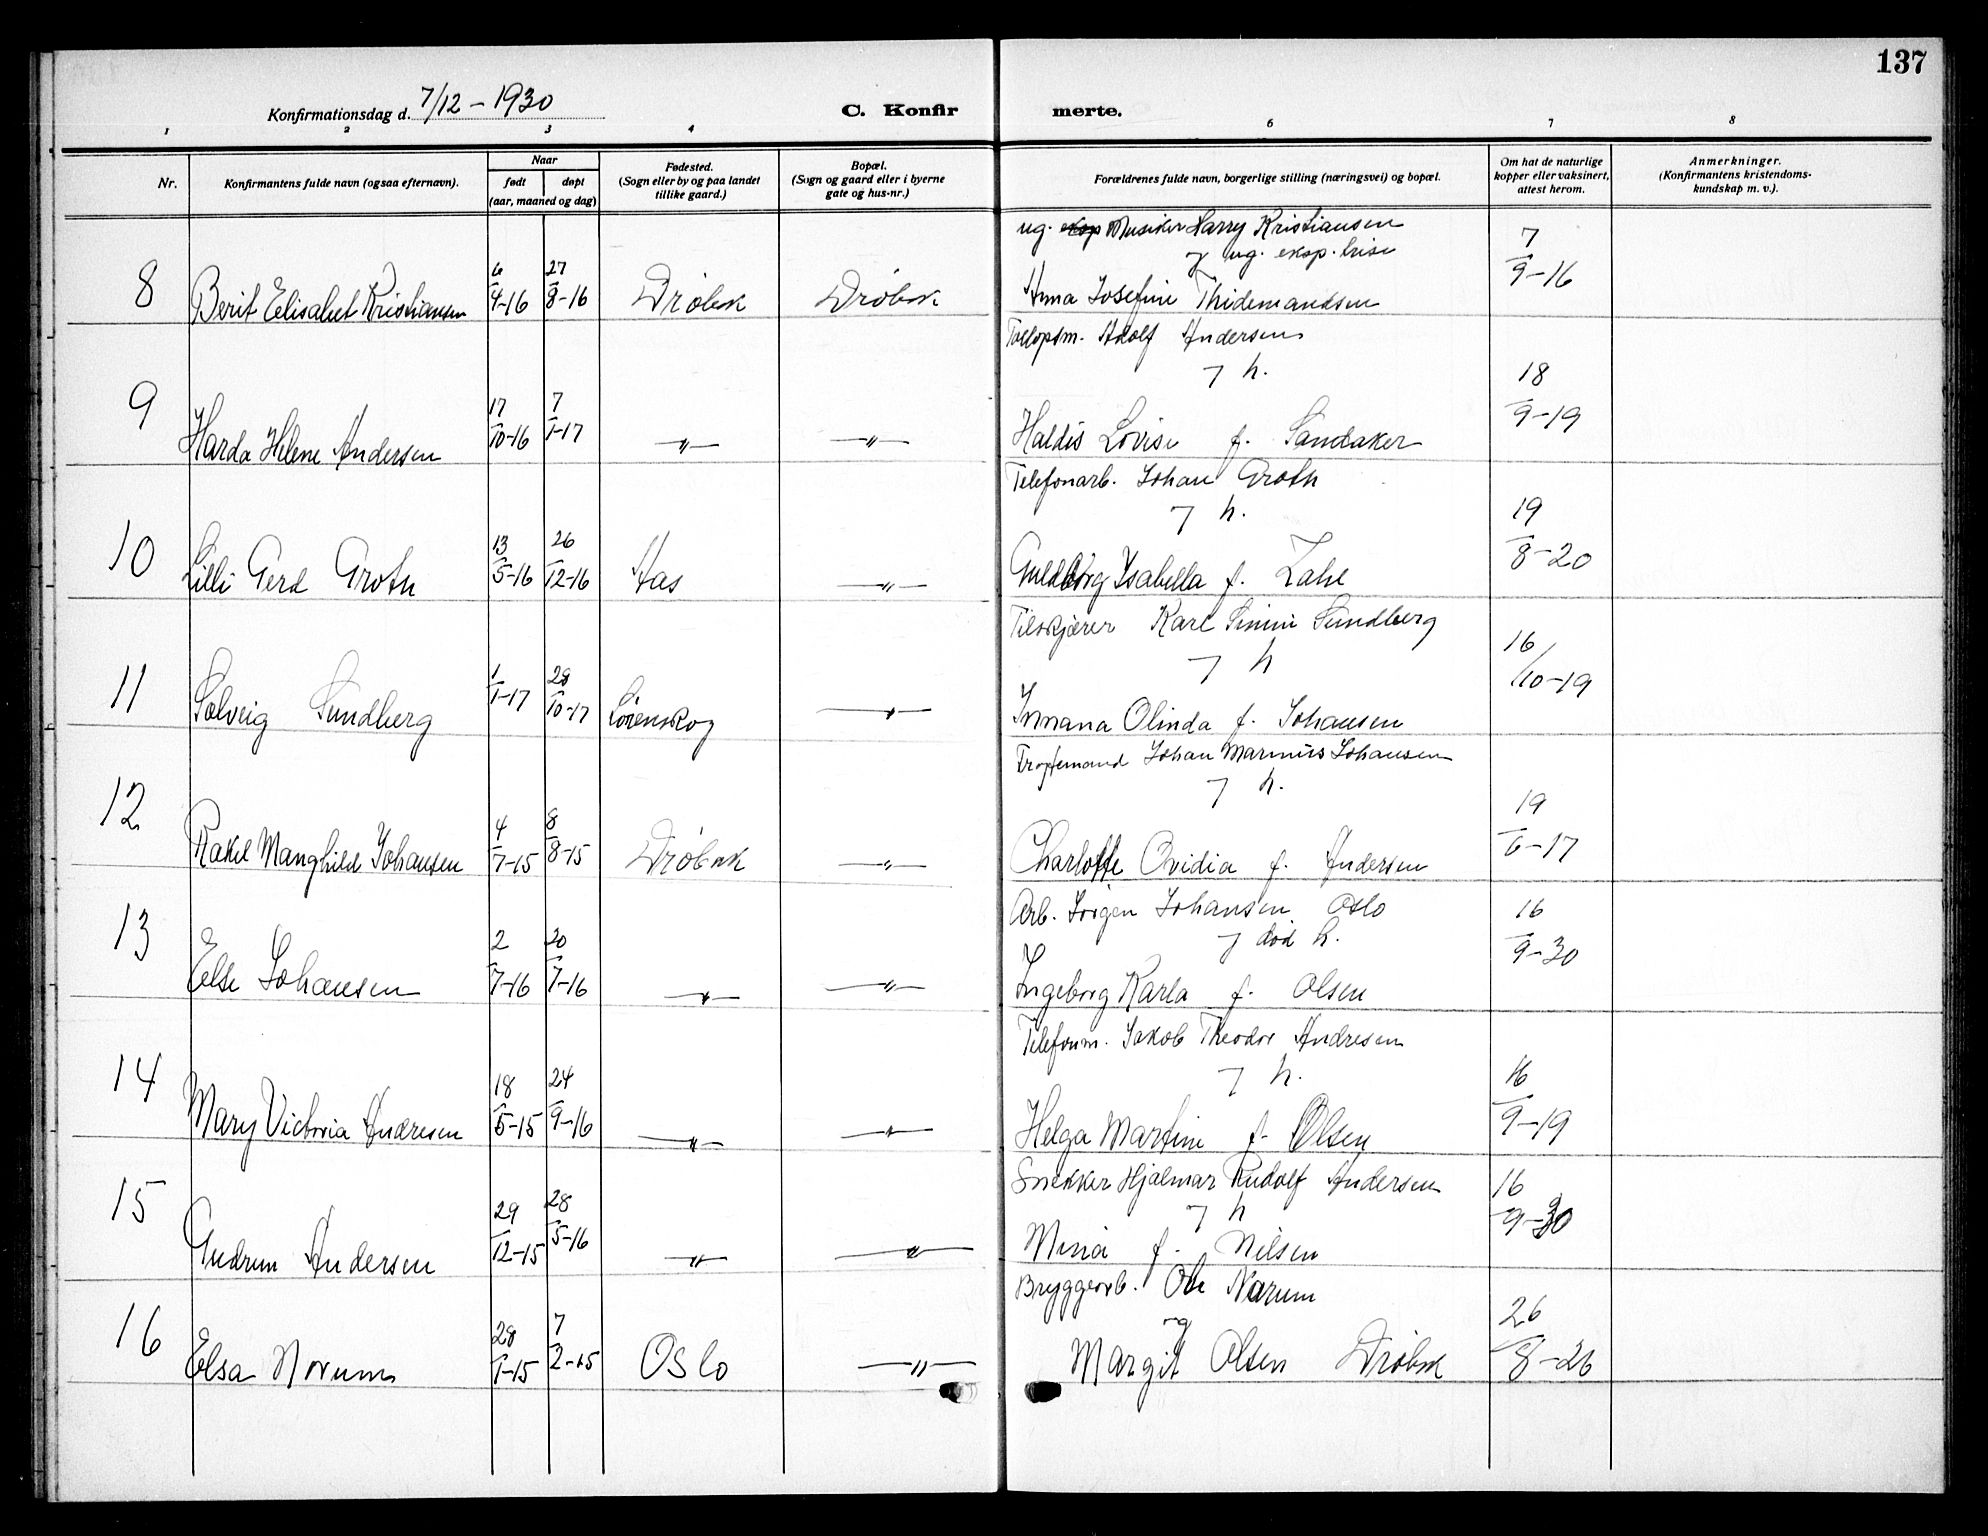 137
Konfirmationsdag d. 7/12 - 1930
C. Konfirmerte.
1 2 3 4 6 7 8
Nr.
Konfirmantens fulde navn (ogsaa efternavn).
Naar
født
døpt
(aar, maaned og dag)
Fødested.
(Sogn eller by og paa landet
tillike gaard.)
Bopæl.
(Sogn og gaard eller i byerne
gate og hus-nr.)
Forældrenes fulde navn, borgerlige stilling (næringsvei) og bopæl.
Om hat de naturlige
kopper eller vaksinert,
attest herom.
Anmerkninger.
(Konfirmantens kristendoms-
kundskap m. v.).
ug. eksp Musiker Harry Kristiansen
og ug. eksp.trise
8 Berit Elisabet Kristiansen 6/4-16 27/8-16 Drøbak Drøbak Anna Josefine Thidemandsen 7/9-16
Tollopsm. Adolf Andersen
og h.
9 Harda Helene Andersen 17/10-16 7/1-17 -"- -"- Haldis Lovise f. Sandaker 18/9-19
Telefonarb. Johan Groth
og h.
10 Lilli Gerd Groth 13/5-16 26/12-16 Aas -"- Guldborg Isabella f. Lahe 19/8-20
Tilskjærer Karl Simin Sundberg
og h
11 Solveig Sundberg 1/1-17 28/10-17 Lørenskog -"- Innana Olinda f. Johansen 16/10-19
Johan Marinius Johansen
og h.
12 Rakel Manghild Johansen 4/7-15 8/8-15 Drøbak -"- Charlotte Ovidia f. Andersen 19/6-17
Arb. Jörgen Johansen, Oslo
og död h.
13 Else Johansen 2/7-16 20/7-16 -"- -"- Ingeborg Karla f. Olsen 16/9-30
Telefonm. Jakob Theodor Andresen
og h.
14 Mary Victoria Andresen 18/5-15 24/9-16 -"- -"- Helga Martine f. Olsen 16/9-19
Snekker Hjalmar Rudolf Andersen
og h
15 Gudrun Andersen 29/12-15 28/5-16 -"- -"- Mina f. Nilsen 16/9-30
Bryggearb. Ole Narum
og
16 Elsa Norum 28/1-15 7/2-15 Oslo -"- Margit Olsen Drøbak 26/8-26